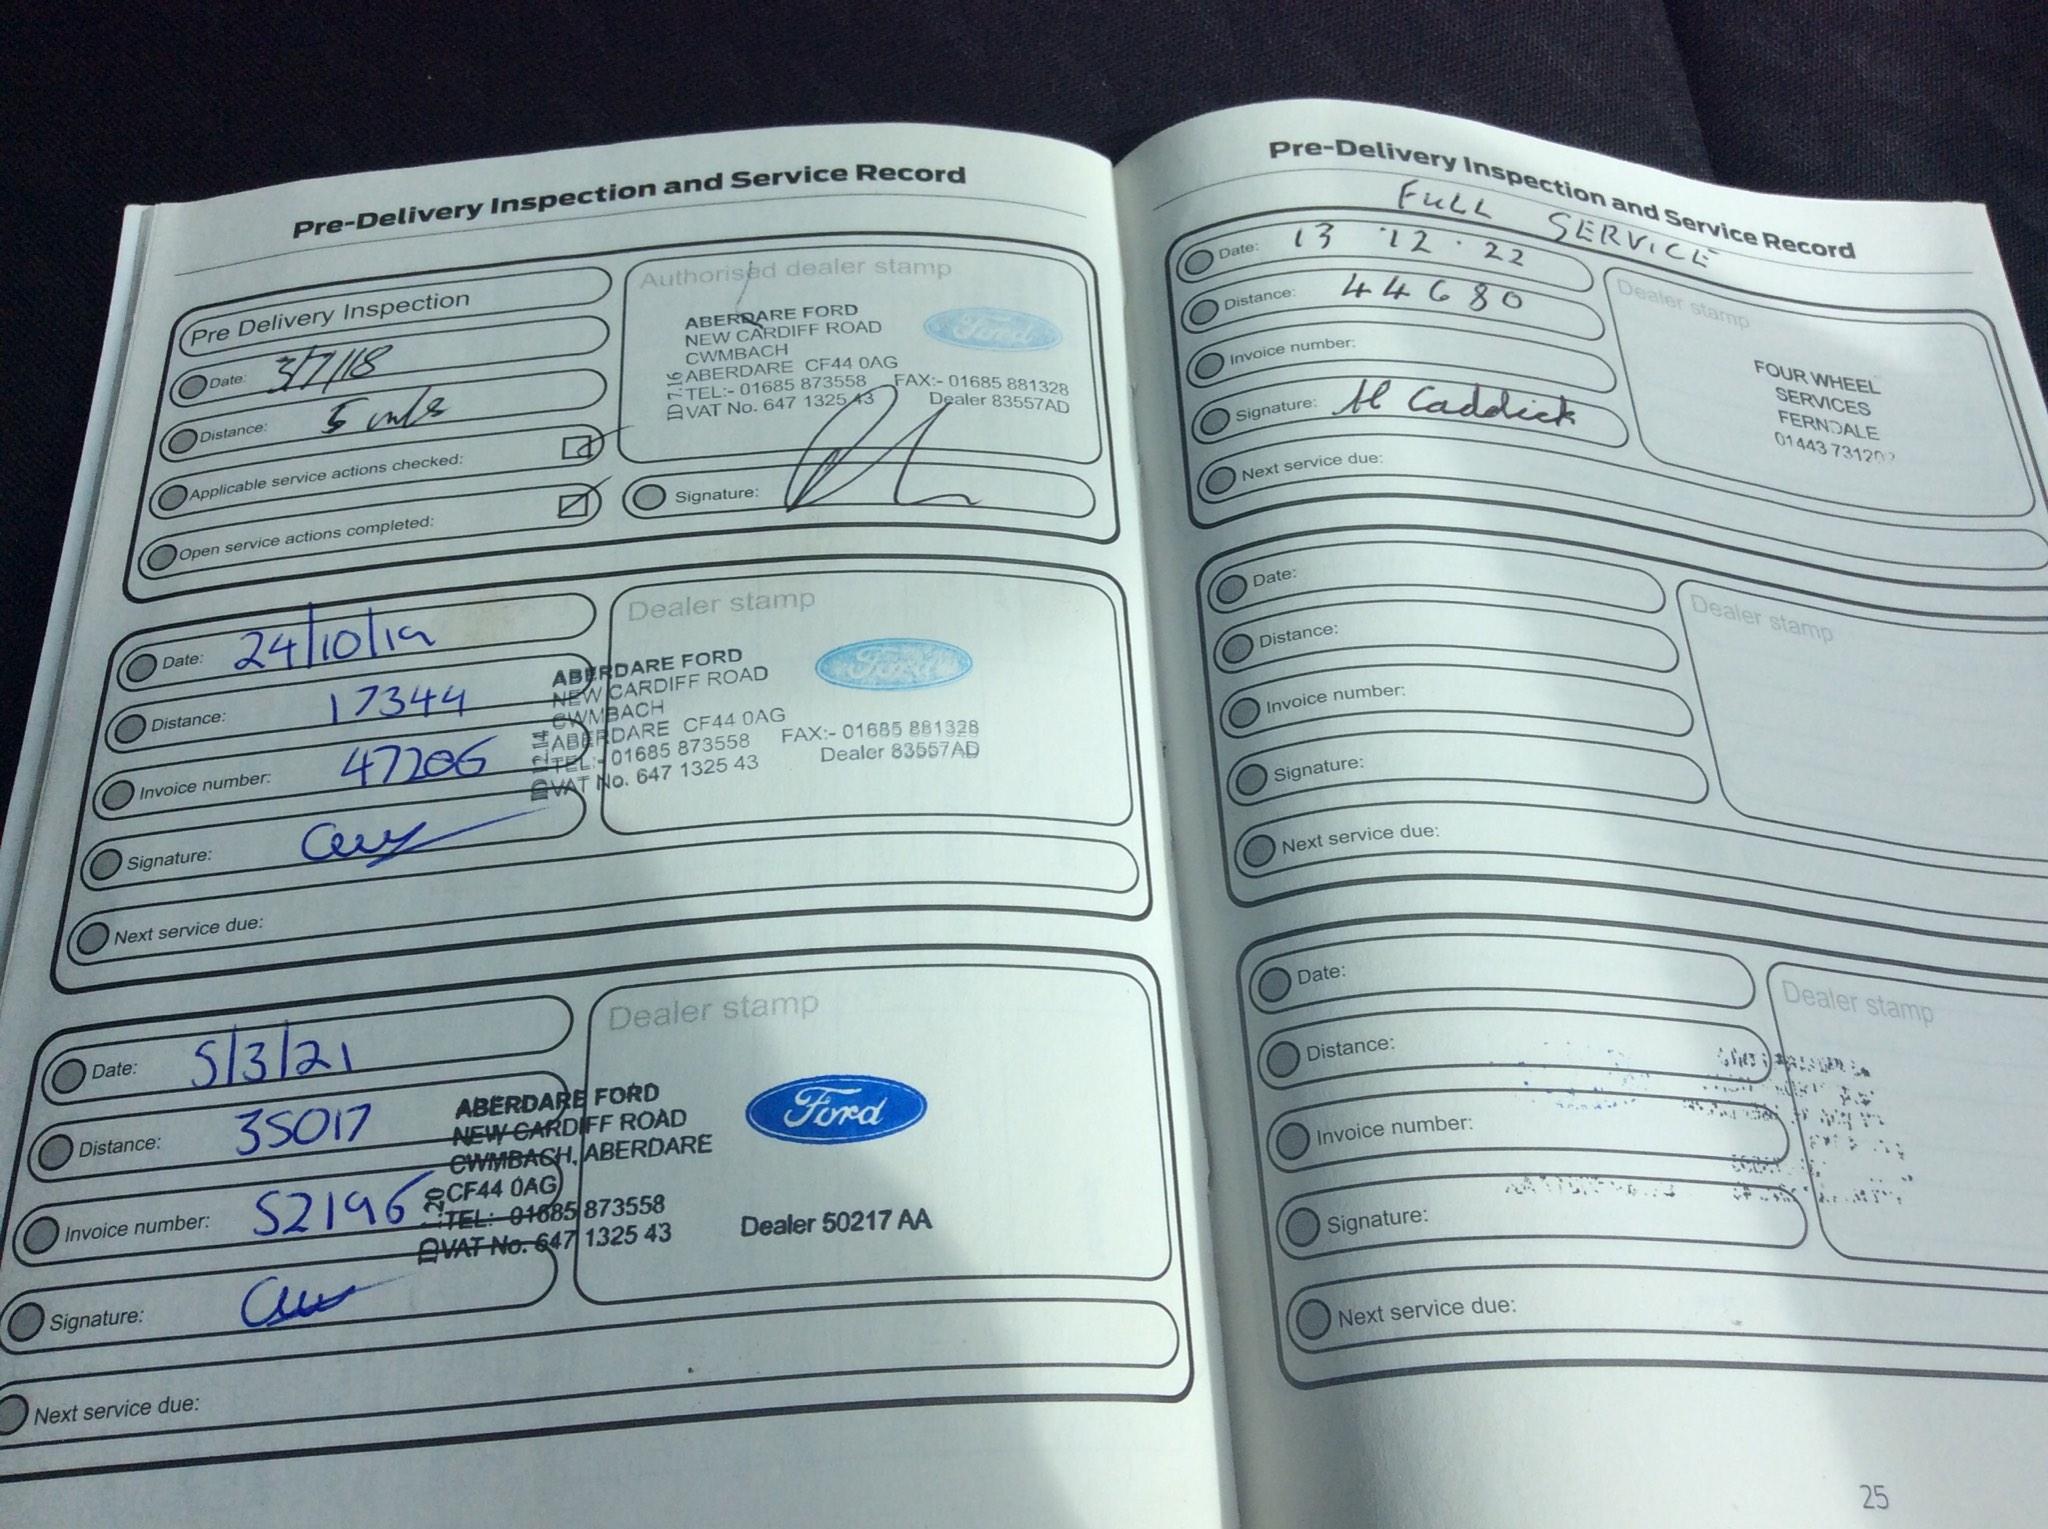 Pre-Delivery Inspection and Service Record
Pre Delivery Inspection
Date: 3/7/18
Distance: 5 mls
Applicable service actions checked:
Open service actions completed:
Authorised dealer stamp
ABERDARE FORD
NEW CARDIFF ROAD
CWMBACH
ABERDARE CF44 0AG
TEL:- 01685 873558 FAX:- 01685 881328
VAT No. 647 1325 43 Dealer 83557AD
ID 7:16
Ford
Signature:
Date: 24/10/19
Distance: 17344
Invoice number: 47206
Signature:
Next service due:
Dealer stamp
ABERDARE FORD
NEW CARDIFF ROAD
CWMBACH
ABERDARE CF44 0AG
TEL:- 01685 873558 FAX:- 01685 881328
VAT No. 647 1325 43 Dealer 83557AD
ID 12:14
Ford
Date: 5/3/21
Distance: 35017
Invoice number: 52196
Signature:
Next service due:
Dealer stamp
ABERDARE FORD
NEW CARDIFF ROAD
CWMBACH, ABERDARE
CF44 0AG
TEL:- 01685 873558
VAT No. 647 1325 43
Ford
Dealer 50217 AA
Pre-Delivery Inspection and Service Record
FULL SERVICE
Date: 13.12.22
Distance: 44680
Invoice number:
Signature: M Caddick
Next service due:
Dealer stamp
FOUR WHEEL
SERVICES
FERNDALE
01443
Date:
Distance:
Invoice number:
Signature:
Next service due:
Dealer stamp
Date:
Distance:
Invoice number:
Signature:
Next service due:
Dealer stamp
25